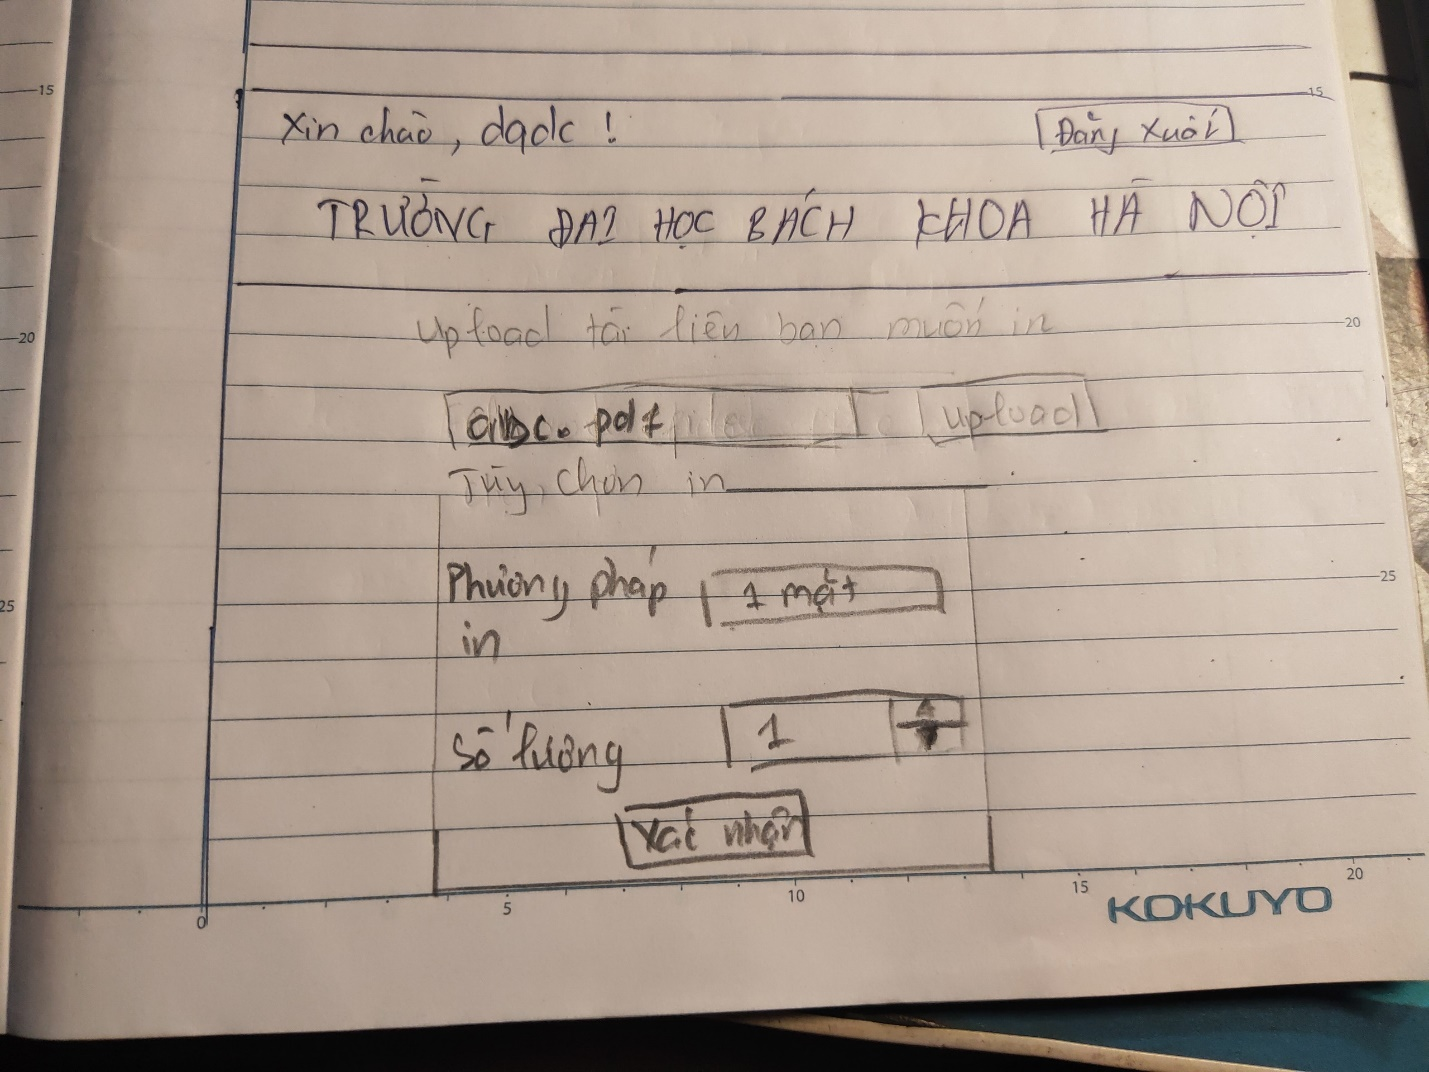 15
15
Xin chào, dqdc !
Đăng xuất
TRƯỜNG ĐẠI HỌC BÁCH KHOA HÀ NỘI
20
20
Upload tài liệu bạn muốn in
abc.pdf
upload
Tùy chọn in
25
25
Phương pháp
1 mặt
in
Số lượng
1
Xác nhận
0
5
10
15
20
KOKUYO